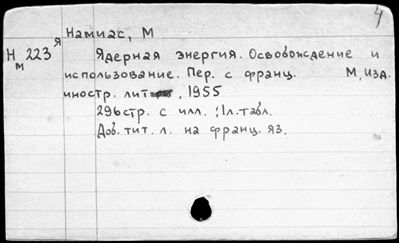 4
Намиас, М
Н 223 Я
м
Ядерная энергия. Освобождение и
использование. Пер. с франц. М, Изд.
иностр. лит, 1955
296стр. с илл.; 1л.табл.
Доб. тит. л. на франц. яз.